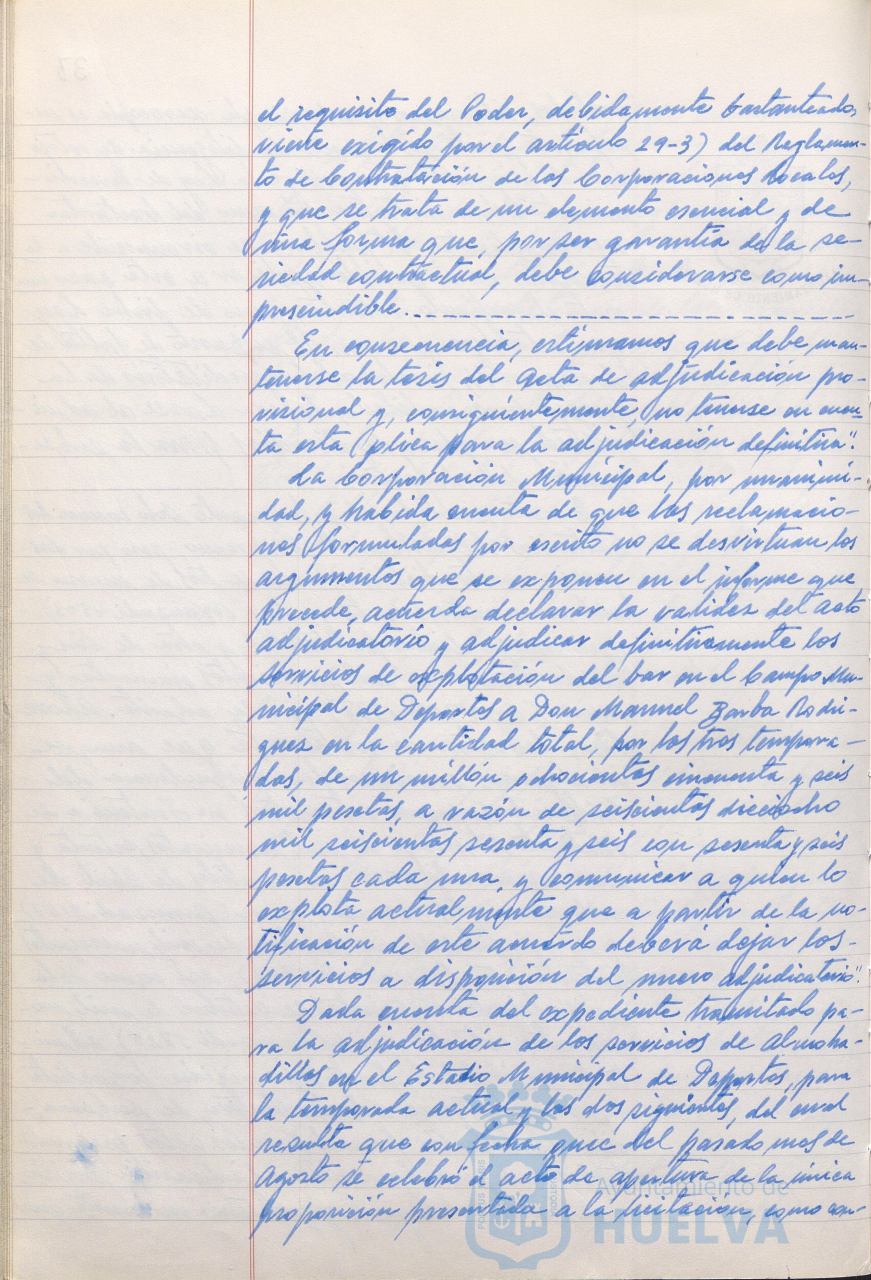 el requisito del Poder, debidamente bastanteado,
viene exigido por el artículo 29-3) del Reglamen-
to de Contratación de las Corporaciones Locales,
y que se trata de un elemento esencial y de
una forma que, por ser garantía de la se-
riedad contractual, debe considerarse como im-
prescindible.
En consecuencia, estimamos que debe man-
tenerse la tesis del Acta de adjudicación pro-
visional y, consiguientemente, no tenerse en cuen-
ta esta plica para la adjudicación definitiva".
La Corporación Municipal, por unanimi-
dad, y habida cuenta de que las reclamacio-
nes formuladas por escrito no se desvirtuan los
argumentos que se exponen en el informe que
precede, acuerda declarar la validez del acto
adjudicatorio y adjudicar definitivamente los
servicios de explotación del bar en el Campo Mu-
nicipal de Deportes a Don Manuel Barba Rodri-
guez en la cantidad total, por las tres tempora-
das, de un millón ochocientas cincuenta y seis
mil pesetas, a razón de seiscientas dieciocho
mil seiscientas sesenta y seis con sesenta y seis
pesetas cada una, y comunicar a quien lo
explota actualmente que a partir de la no-
tificación de este acuerdo deberá dejar los-
servicios a disposición del nuevo adjudicatario".
Dada cuenta del expediente tramitado pa-
ra la adjudicación de los servicios de Almoha-
dillas en el Estadio Municipal de Deportes, para
la temporada actual y las dos siguientes, del cual
resulta que con fecha once del pasado mes de
Agosto se celebró el acto de apertura de la única
proposición presentada a la licitación, como con-
Ayuntamiento de
HUELVA